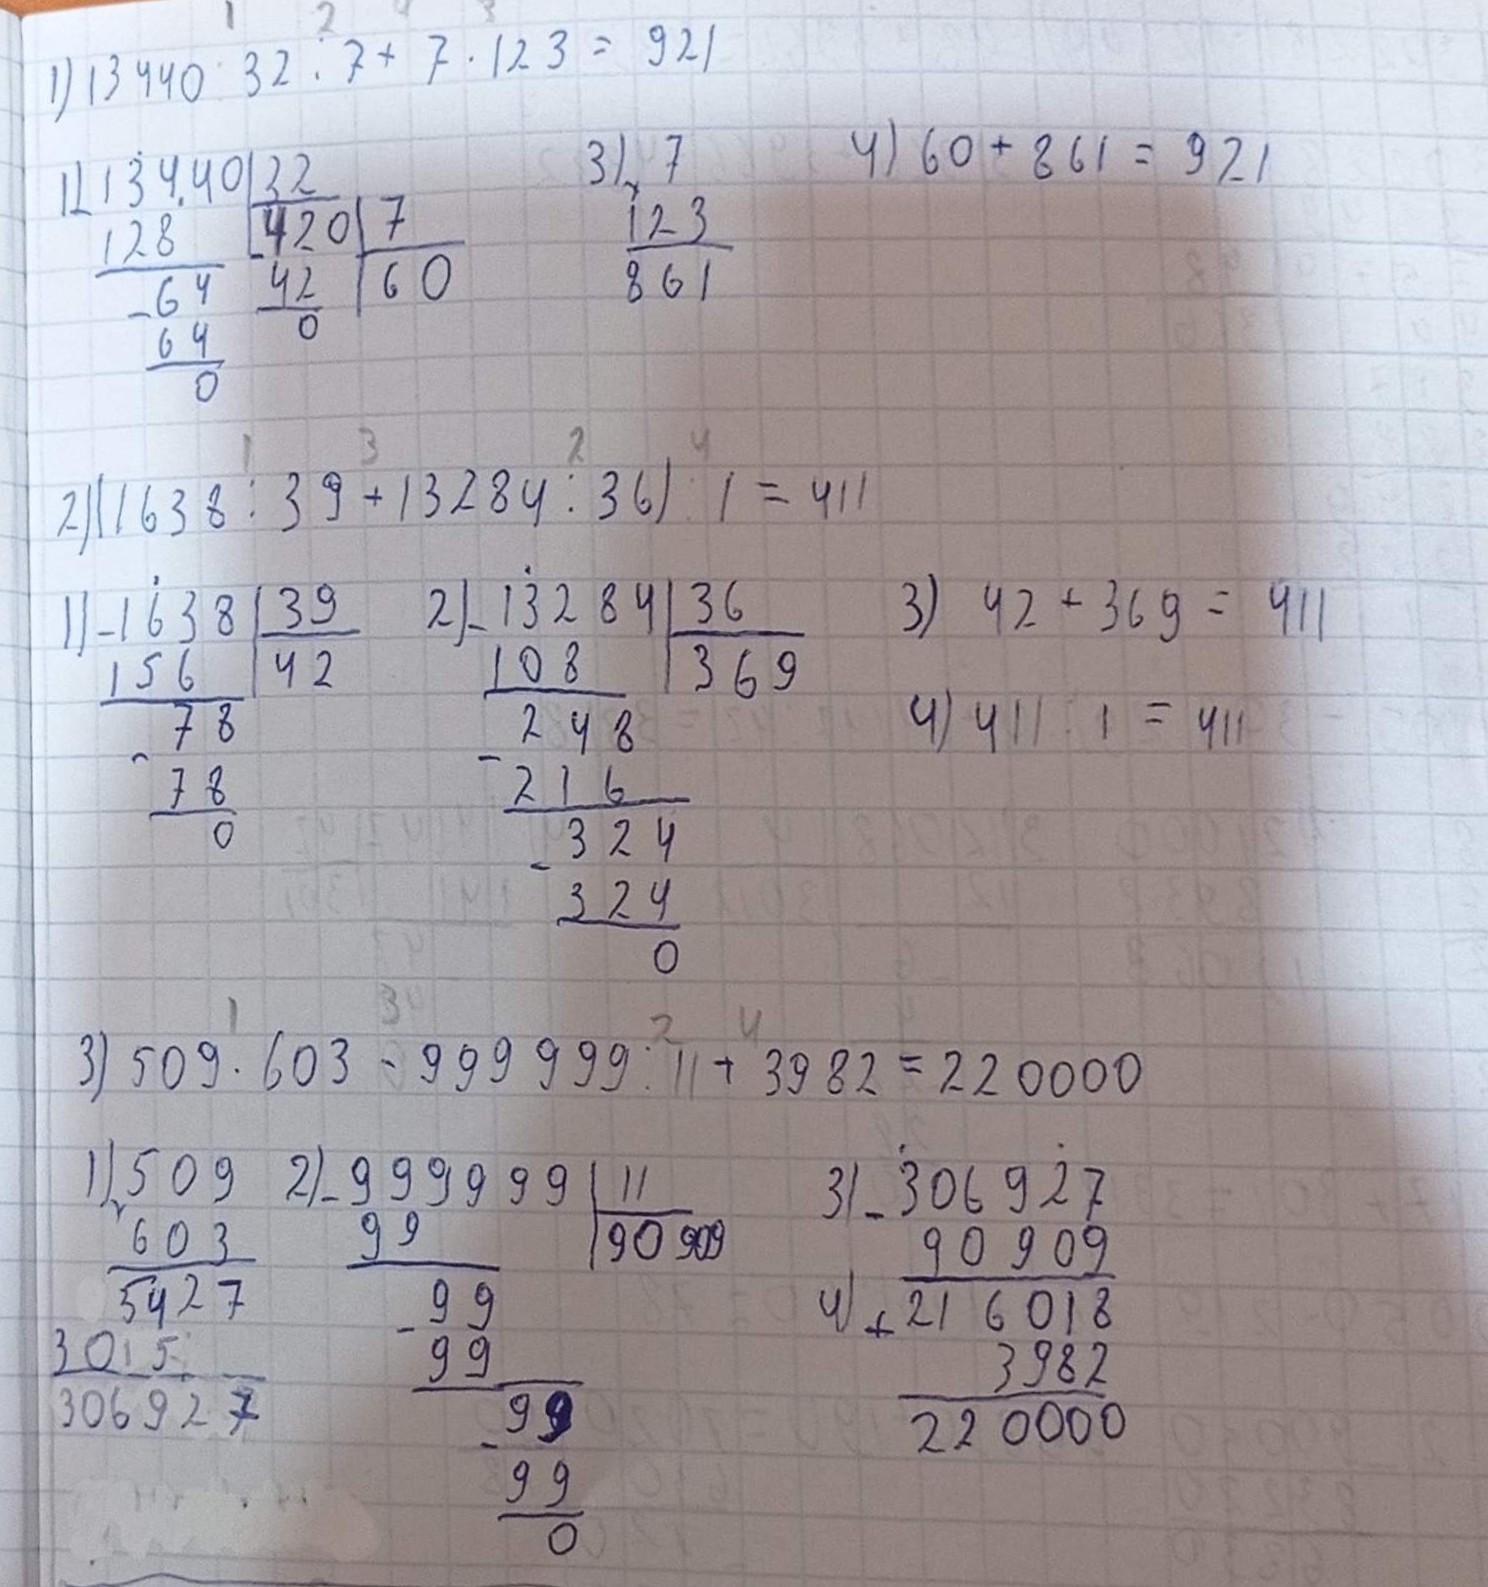 1 2 4 3
1) 13440 : 32 : 7 + 7 · 123 = 921
1) 13440 | 32 3) 7 4) 60 + 861 = 921
128 420 | 7 123
64 42 60 861
64 0
0
1 3 2 4
2) (1638 : 39 + 13284 : 36) : 1 = 411
1) - 1638 | 39 2) - 13284 | 36 3) 42 + 369 = 411
156 42 108 369
78 - 248 4) 411 : 1 = 411
- 78 216
0 - 324
324
0
1 3 2 4
3) 509 · 603 - 999999 : 11 + 3982 = 220000
1) 509 2) - 999999 | 11 3) - 306927
603 99 90909 90909
5427 - 99 4) + 216018
3015 99 3982
306927 - 99 220000
99
0